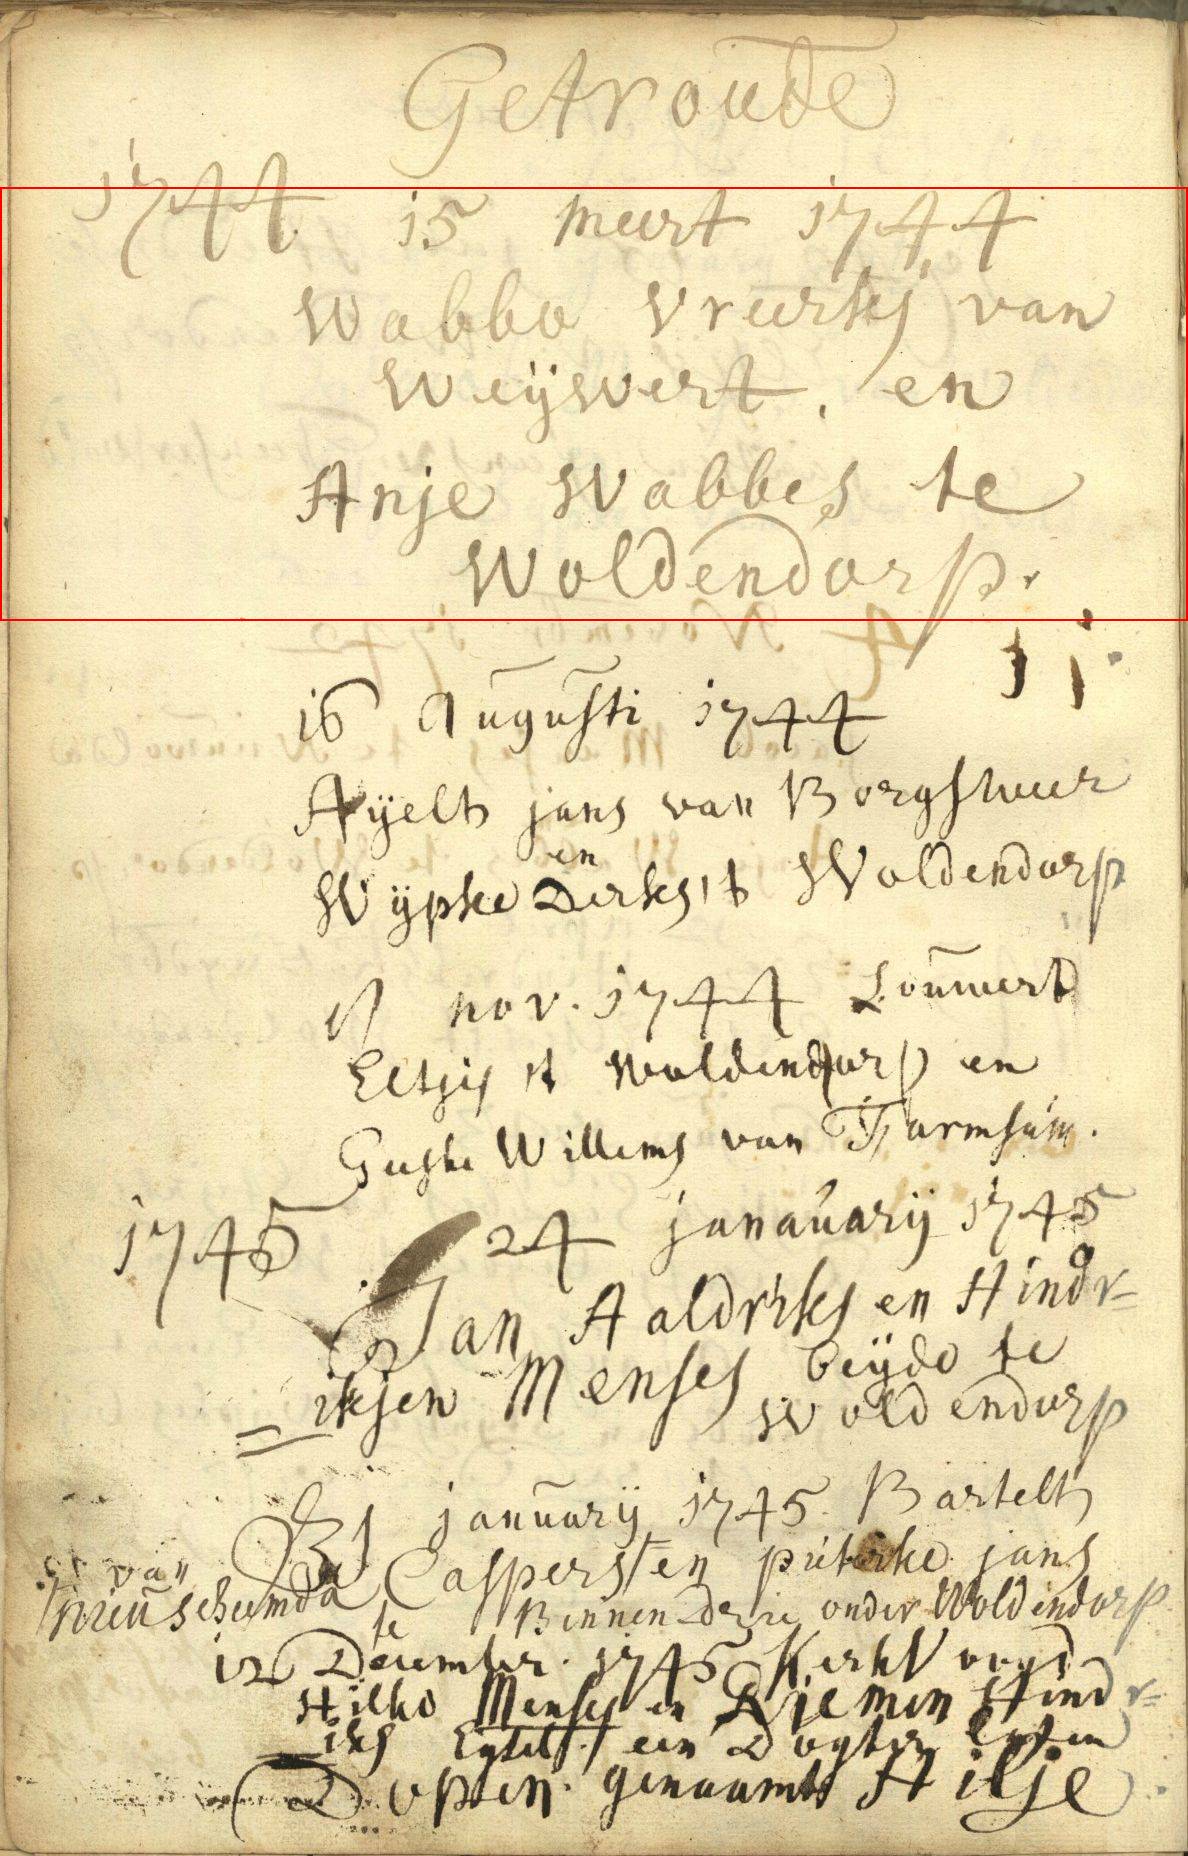 Getroude
1744 15 meert 1744
Wabbo Vreerks van
Weijwert, en
Anje Wabbes te
Woldendorp.
16 Augusti 1744
Aijelt jans van Borgsweer
en
Wijpke Derks, t Woldendorp
nov. 1744 Louwert
Eltjes t Woldendorp en
Geeske Willems van Farmsum.
1745 24 januarij 1745
Jan Aaldriks en Hindr=
ikjen Menses beijde te
= Woldendorp
31 januarij 1745 Bartelt
van Caspers en pieterke jans
nieuscheemda te Binnen onder Woldendorp
12 December 1745 KerkVoogd
Hilko Menses en Diemen Hindr=
iks Egtel. een Dogter laten
Dopen genaamt Hilje.